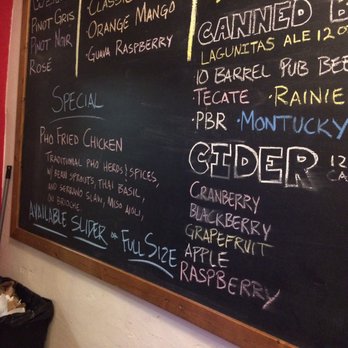 Pinot Gris
Pinot Noir
Rosé
Classic
Orange Mango
Guava Raspberry
Special
Pho Fried Chicken
Traditional Pho Herbs! Spices,
w/ Bean Sprouts, Thai Basil,
and Serrano Slaw, Miso Aioli,
on Brioche
Available Slider or Full Size
Canned B
Lagunitas Ale 120
10 Barrel Pub Bee
·Tecate ·Rainie
·PBR ·Montucky
Cider 12
Ca
Cranberry
Blackberry
Grapefruit
Apple
Raspberry